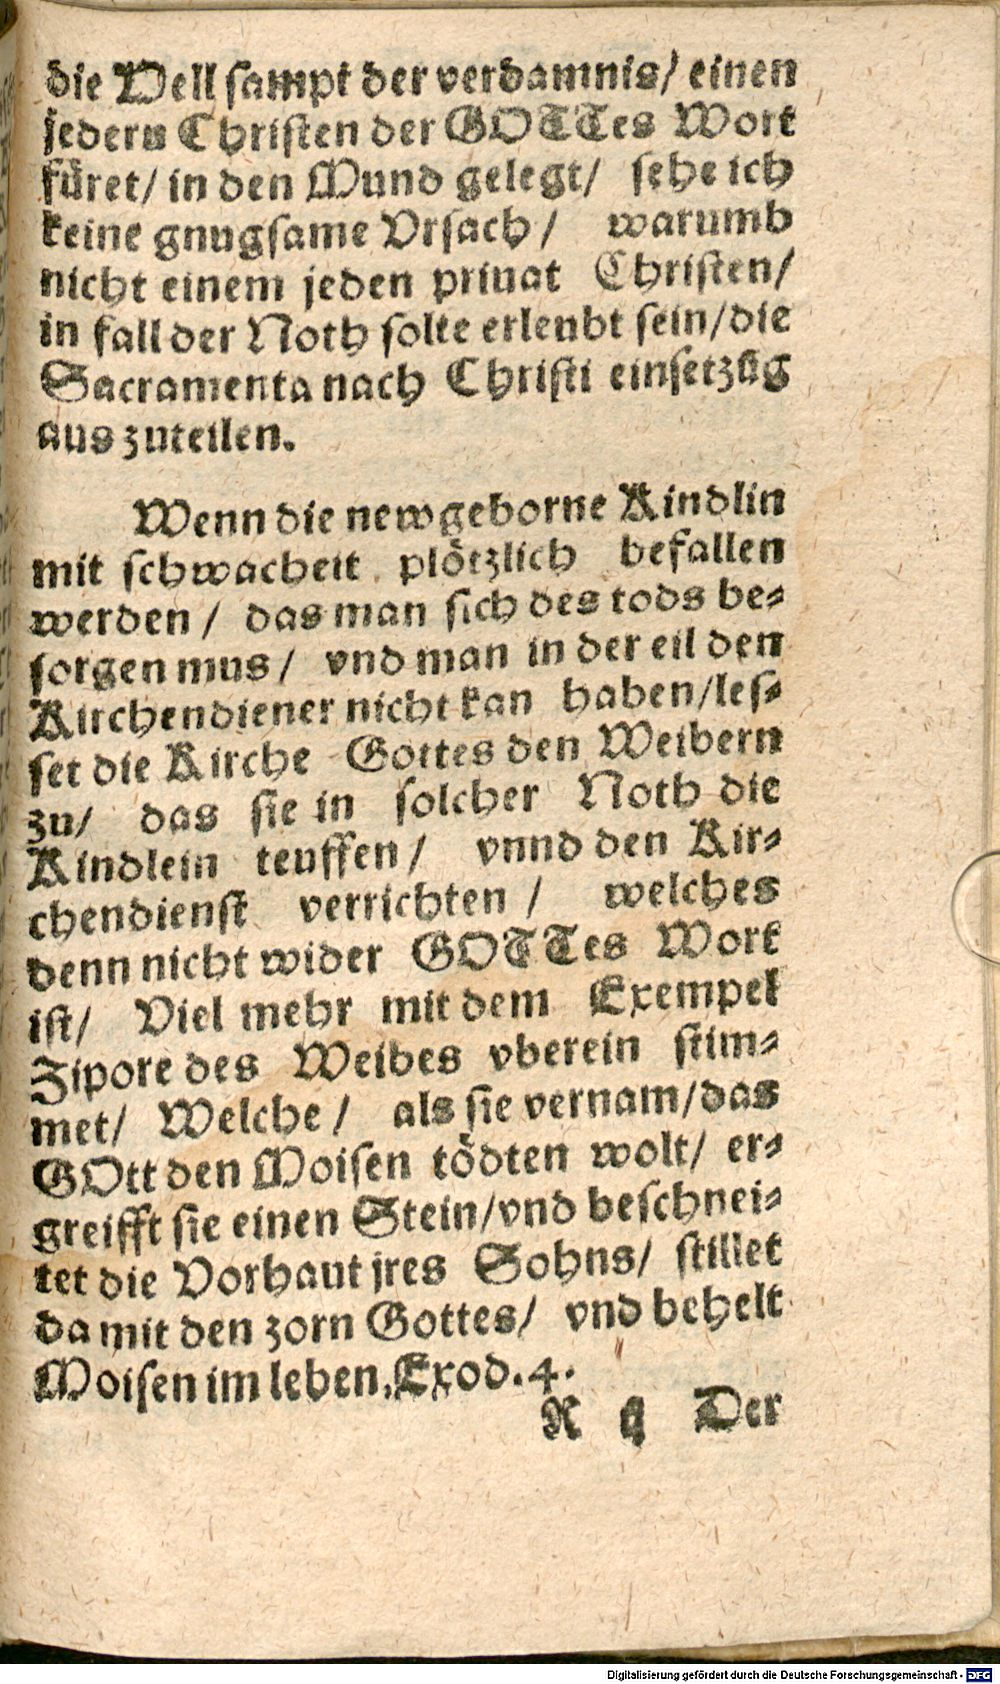 die Vell sampt der verdamnis/ einen
jedern Christen der GOTTes Wort
füret/ in den Mund gelegt/ sehe ich
keine gnugsame Vrsach/ warumb
nicht einem jeden priuat Christen/
in fall der Noth solte erleubt sein/die
Sacramenta nach Christi einsetzūg
aus zuteilen.
Wenn die newgeborne Kindlin
mit schwacheit plötzlich befallen
werden/ das man sich des tods be-
sorgen mus/ vnd man in der eil den
Kirchendiener nicht kan haben/les-
set die Kirche Gottes den Weibern
zu/ das sie in solcher Noth die
Kindlein teuffen/ vnnd den Kir-
chendienst verrichten/ welches
denn nicht wider GOTTes Wort
ist/ Viel mehr mit dem Exempel
Zipore des Weibes vberein stim-
met/ Welche/ als sie vernam/das
GOtt den Moisen tödten wolt/ er-
greifft sie einen Stein/vnd beschnei-
tet die Vorhaut jres Sohns/ stillet
da mit den zorn Gottes/ vnd behelt
Moisen im leben, Exod. 4.
R ij Der
Digitalisierung gefördert durch die Deutsche Forschungsgemeinschaft - DFG